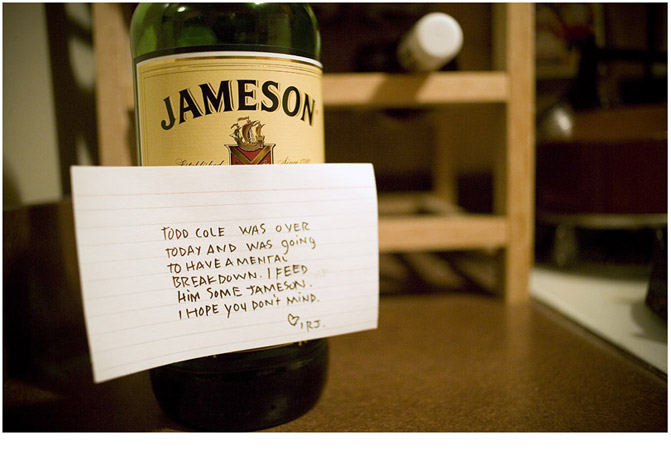 JAMESON
Established Since 1780
TODD COLE WAS OVER
TODAY AND WAS GOiNg
TO HAVE A MENTAL
BREAKDOWN. I FEED
HiM SOME JAMESON.
I HOPE YOU DON'T MIND.
♡, RJ.